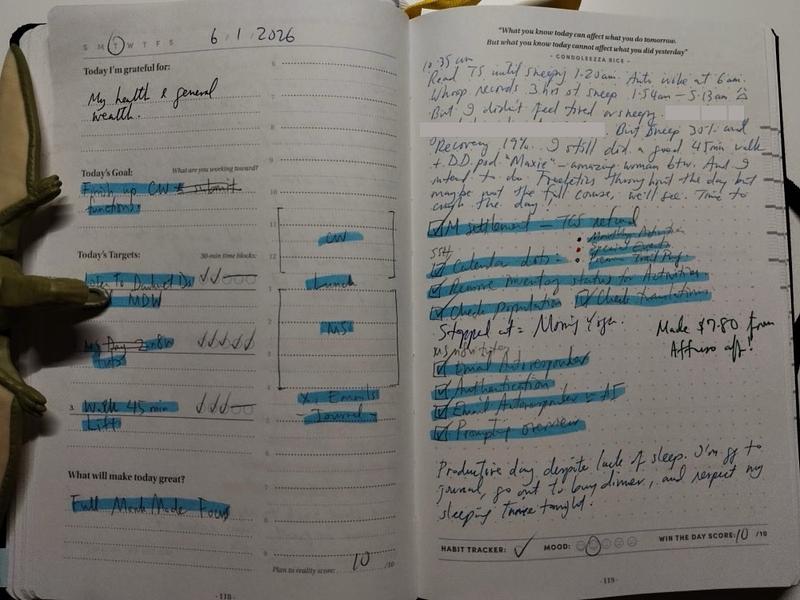 S M T W T F S
6 1 2026
Today I'm grateful for:
My health & general
wealth.
Today's Goal:
What are you working toward?
Finish up CW & submit
functions.
Today's Targets:
30-min time blocks:
MDW
3 Walk 45 min
Lift
What will make today great?
Full Monk Mode Focus
6
7
8
9
10
11
12
1
2
3
4
5
6
7
8
9
CW
Lunch
MS
X, Emails
- Journal -
Plan to reality score: 10 /10
· 118 ·
"What you know today can affect what you do tomorrow.
But what you know today cannot affect what you did yesterday"
- CONDOLEEZZA RICE -
10.35 am
Read TS until sleepy 1.20am. Auto woke at 6am.
Whoop records 3 hrs of sleep 1.54am – 5.13am
But I didn't feel tired or sleepy.
But sleep 30% and
Recovery 19%. I still did a good 45 min walk
+ D.D. pod. "Maxie" – amazing woman btw. And I
intend to do throughout the day but
maybe not the full course, we'll see. Time to
crush the day.
M settlement – TGS refund
Calendar dots:
Remove inventory status for Activities
Check Population Check translations
Stopped at = Morning Yoga.
Made $7.80 from
Affuso aff!
Email Autoresponder
Authentication
Email Autoresponder
Prompting overview
Productive day despite lack of sleep. I'm gg to
journal, go out to buy dinner, and respect my
sleeping time tonight.
HABIT TRACKER: MOOD: WIN THE DAY SCORE: 10 /10
· 119 ·